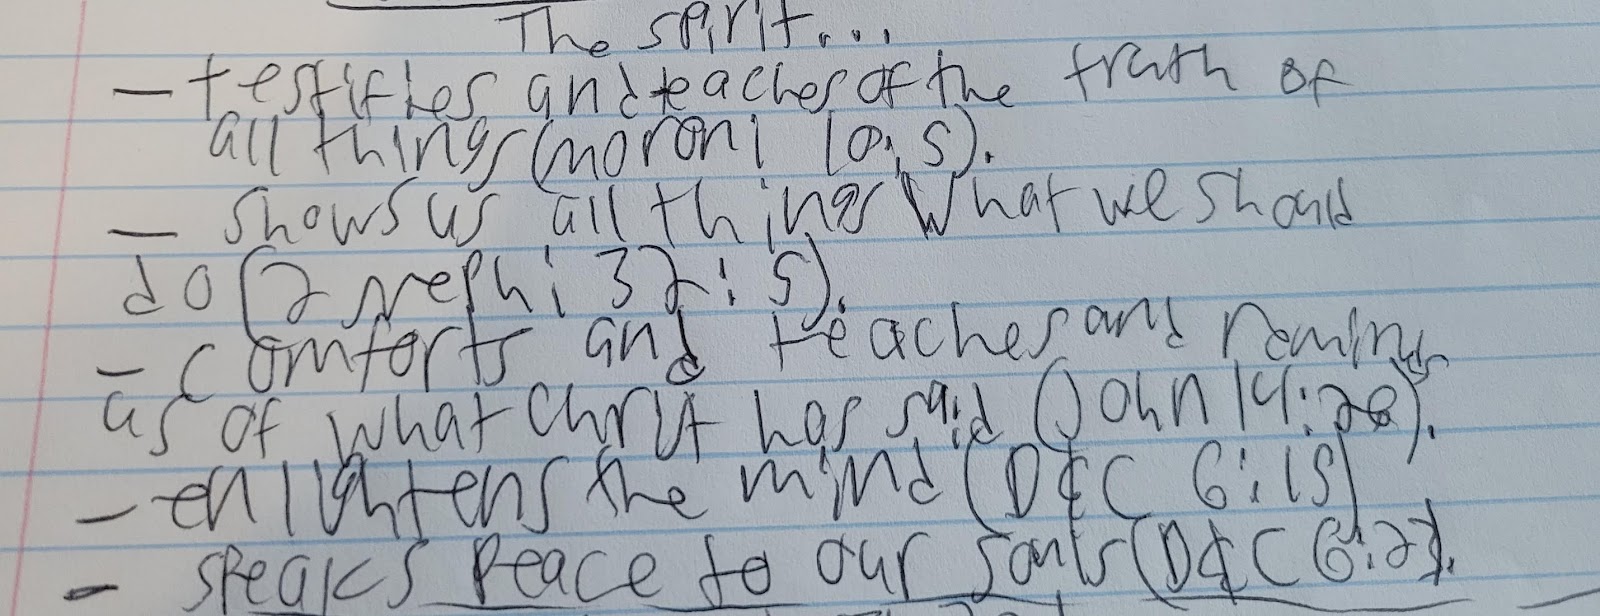 The spirit...
- testifies and teaches of the truth of
all things (moroni 10:5).
- shows us all things what we should
do (2 nephi 32:5).
- comforts and teaches and reminds
us of what Christ has said (John 14:26).
- enlightens the mind (D&C 6:15)
- speaks peace to our souls (D&C 6:23).